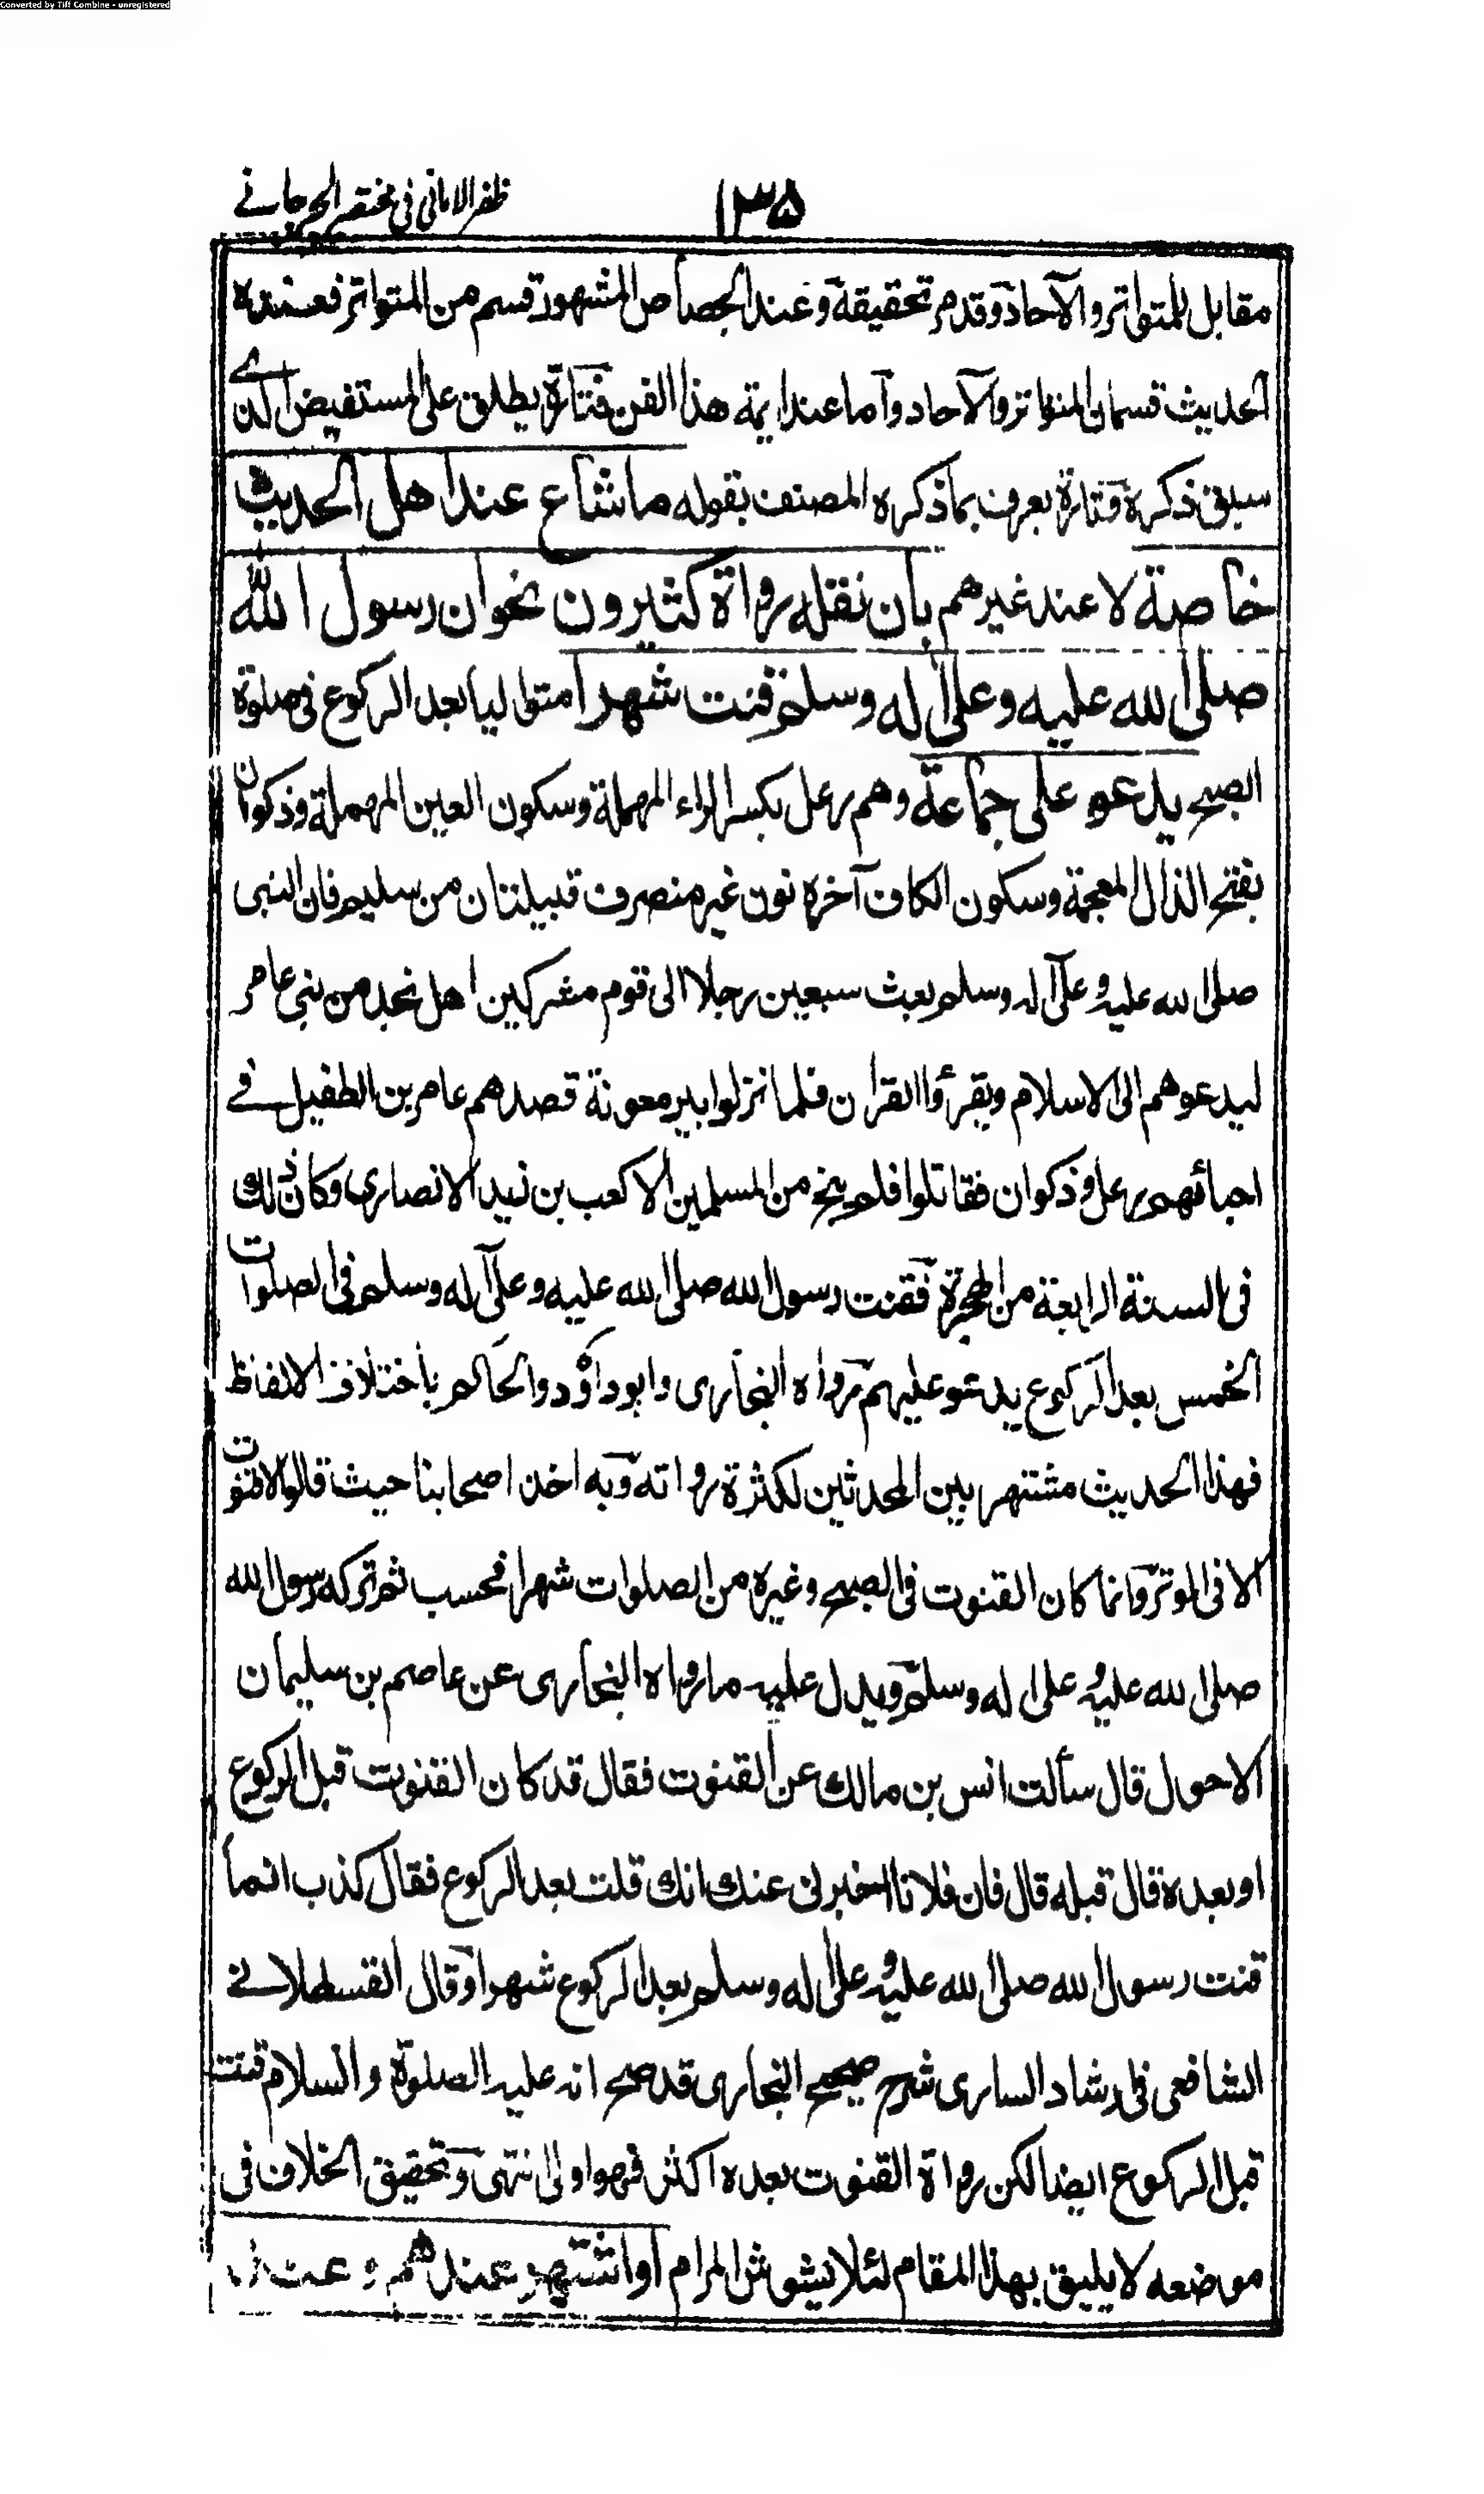 Converted by Tiff Combine - unregistered
ظفر الامانی فی مختصر الجرجانے
۱۳۵
مقابل للمتواتر والآحاد وقد مر تحقيقه وعند الجصاص المشهور قسم من المتواتر فعنده
الحديث قسمان المتواتر والآحاد وأما عند ايمة هذا الفن فتارة يطلق على المستفيض الذے
سبق ذكره وتارة يعرف بما ذكره المصنف بقوله ما شاع عند اهل الحديث
خاصة لا عند غيرهم بان نقله رواة كثيرون نحو ان رسول الله
صلى الله عليه وعلى اله وسلم قنت شهرا متواليا بعد الركوع فى صلوة
الصبح يدعو على جماعة وهم رعل بكسر الراء المهملة وسكون العين المهملة وذكوان
بفتح الذال المعجمة وسكون الكاف آخره نون غير منصرف قبيلتان من سليم فان النبى
صلى الله عليه وعلى آله وسلم بعث سبعين رجلا الى قوم مشركين اهل نجد من بنى عامر
ليدعوهم الى الاسلام ويقرؤا القران فلما نزلوا بير معونة قصدهم عامر بن الطفيل فے
احيائهم رعل وذكوان فقاتلوا فلم ينج من المسلمين الا كعب بن زيد الانصارى وكان ذلك
فى السنة الرابعة من الهجرة فقنت رسول الله صلى الله عليه وعلى آله وسلم فى الصلوات
الخمس بعد الركوع يدعو عليهم رواه البخارى وابو داؤد والحاكم باختلاف الالفاظ
فهذا الحديث مشتهر بين المحدثين لكثرة رواته وبه اخذ اصحابنا حيث قالوا لا قنوت
الا فى الوتر وانما كان القنوت فى الصبح وغيره من الصلوات شهرا فحسب ثم تركه رسول الله
صلى الله عليه وعلى اله وسلم ويدل عليه ما رواه البخارى عن عاصم بن سليمان
الاحول قال سألت انس بن مالك عن القنوت فقال قد كان القنوت قبل الركوع
او بعده قال قبله قال فان فلانا اخبرنى عنك انك قلت بعد الركوع فقال كذب انما
قنت رسول الله صلى الله عليه وعلى اله وسلم بعد الركوع شهرا وقال القسطلانے
الشافعى فى ارشاد السارى شرح صحيح البخارى قد صح انه عليه الصلوة والسلام قنت
قبل الركوع ايضا لكن رواة القنوت بعده اكثر فهو اولى انتهى وتحقيق الخلاف فى
موضعه لا يليق بهذا المقام لئلا يشوش المرام او اشتهر عندهم وعند